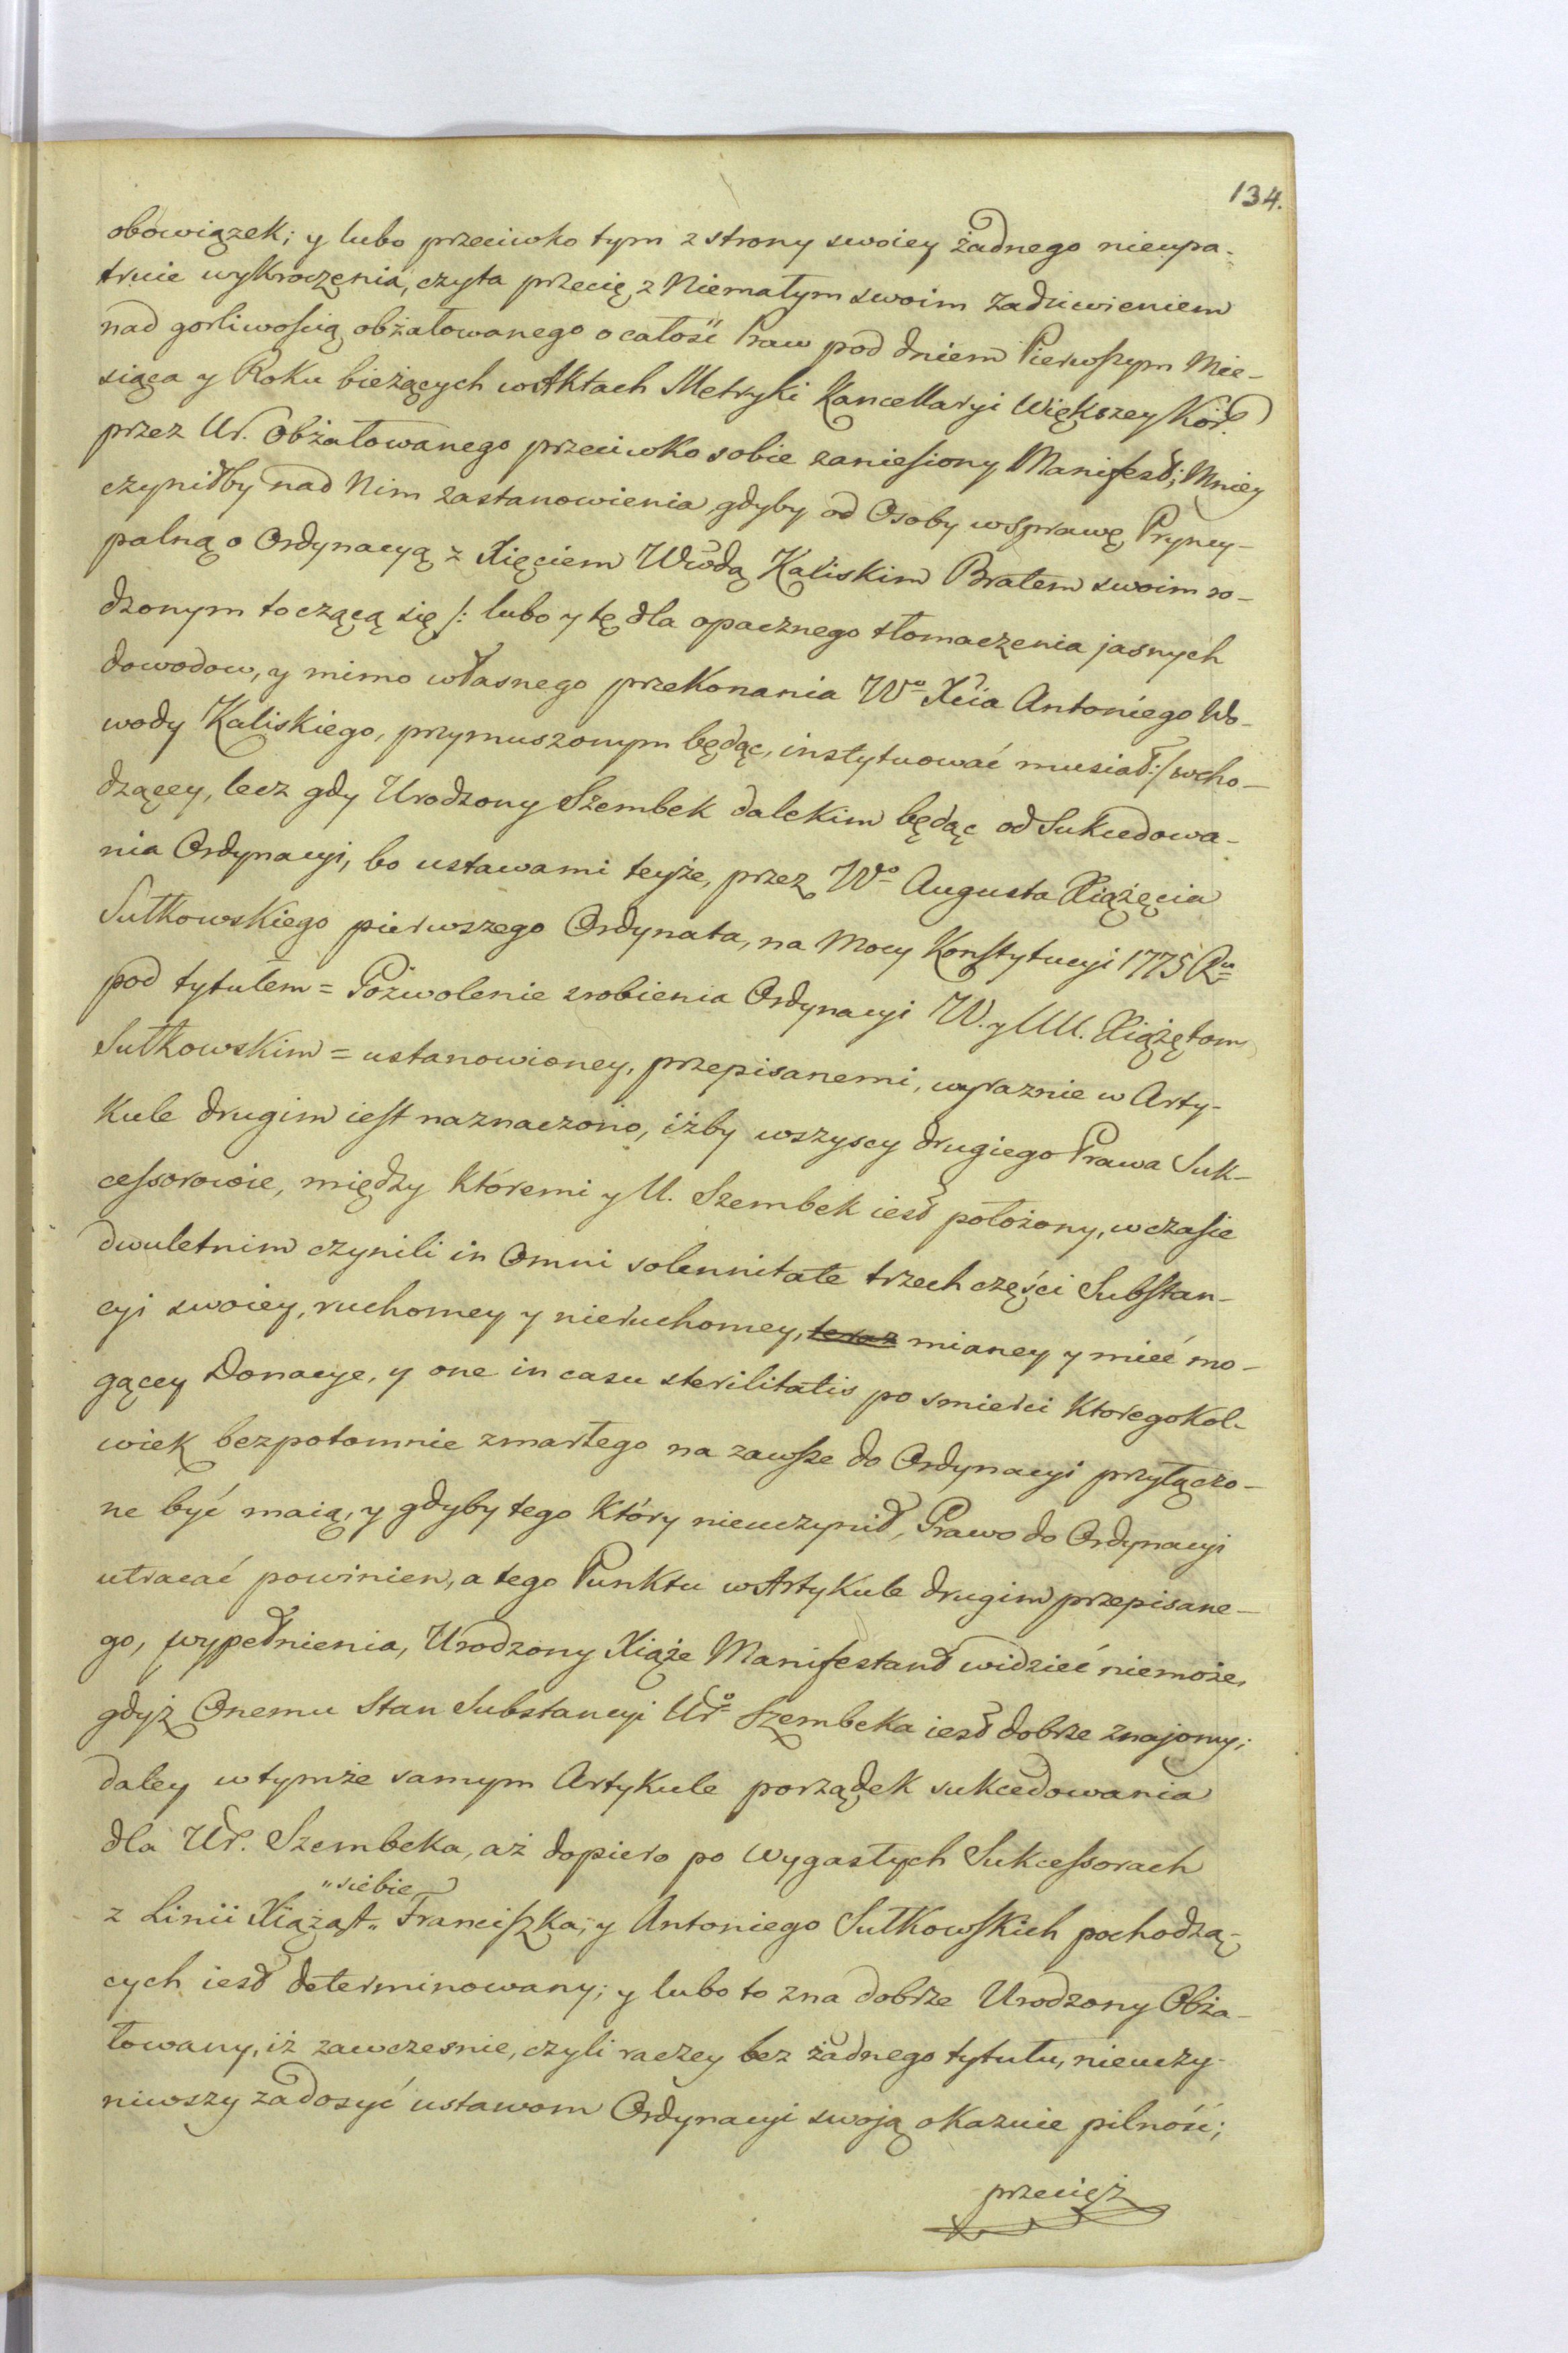 134.
obowiązek; y lubo przeciwko tym z strony swoiey żadnego nieupa-
truie wykroczenia, czyta przecię z Niemałym swoim zadziwieniem
nad gorliwością obżałowanego o całość Praw pod dniem Pierwszym Mie-
siąca y Roku bieżących w Aktach Metryki Kancellaryi Większey Kor:
przez Ur. Obżałowanego przeciwko sobie zaniesiony Manifest; Mniey
czyniłby nad Nim zastanowienia gdyby od Osoby w sprawę Pryncy-
palną o Ordynacyą z Xięciem Wwdą Kaliskim Bratem swoim ro-
dzonym toczącą się /: lubo y tę dla opacznego tłomaczenia jasnych
dowodow, y mimo własnego przekonania Wo Xcia Antoniego Wo-
wody Kaliskiego, przymuszonym będąc, instytuować musiał :/ wcho-
dzącey, lecz gdy Urodzony Szembek dalekim będąc od Sukcedowa-
nia Ordynacyi, bo ustawami teyże, przez Wo Augusta Xiążęcia
Sułkowskiego pierwszego Ordynata, na Mocy Konstytucyi 1775 Ru
pod tytułem = Pozwolenie zrobienia Ordynacyi W. y UU. Xiążętom
Sułkowskim = ustanowioney, przepisanemi, wyraznie w Arty-
kule drugim iest naznaczono, iżby wszyscy drugiego Prawa Suk-
cessorowie, między któremi y U. Szembek iest położony, w czasie
dwuletnim czynili in Omni solennitate trzech części Substan-
cyi swoiey, ruchomey y nieruchomey, teraz mianey y mieć mo-
gącey Donacye, y one in casu sterilitatis po smierci ktoregokol-
wiek bezpotomnie zmarłego na zawsze do Ordynacyi przyłączo-
ne być maią, y gdyby tego który nieuczynił, Prawo do Ordynacyi
utracać powinien, a tego Punktu w Artykule drugim przepisane-
go, wypełnienia, Urodzony Xiąże Manifestant widzieć niemoże,
gdyż Onemu Stan Substancyi Uro Szembeka iest dobrze znajomy;
daley w tymże samym Artykule porządek sukcedowania
dla Ur. Szembeka, aż dopiero po wygasłych Sukcessorach
"siebie
z Linii Xiążąt " Franciszka, y Antoniego Sułkowskich pochodzą-
cych iest determinowany; y lubo to zna dobrze Urodzony Obża-
łowany, iż zawczesnie, czyli raczey bez żadnego tytułu, nieuczy-
niwszy zadosyć ustawom Ordynacyi swoją okazuie pilność;
przecięż